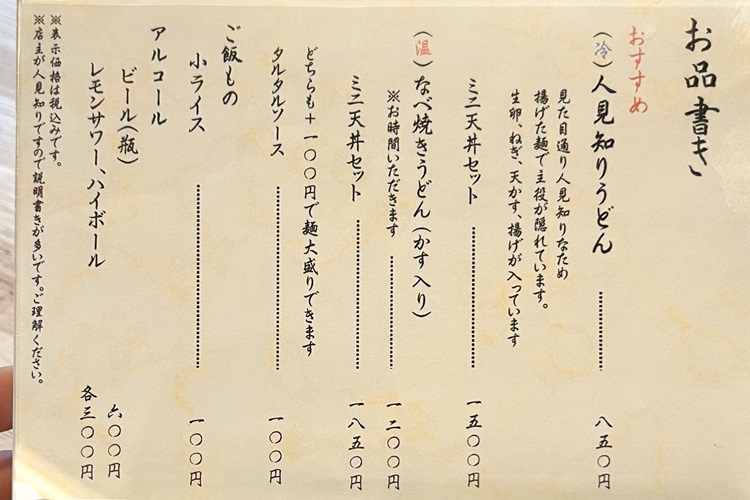 お品書き
おすすめ
(冷)人見知りうどん 八五〇円
見た目通り人見知りなため
揚げた麺で主役が隠れています。
生卵、ねぎ、天かす、揚げが入っています
ミニ天丼セット 一五〇〇円
(温)なべ焼きうどん(かす入り)
※お時間いただきます 一二〇〇円
ミニ天丼セット 一八五〇円
どちらも+一〇〇円で麺大盛りできます
タルタルソース 一〇〇円
ご飯もの
小ライス 一〇〇円
アルコール
ビール(瓶) 六〇〇円
レモンサワー、ハイボール 各三〇〇円
※表示価格は税込みです。
※店主が人見知りですので説明書きが多いです。ご理解ください。